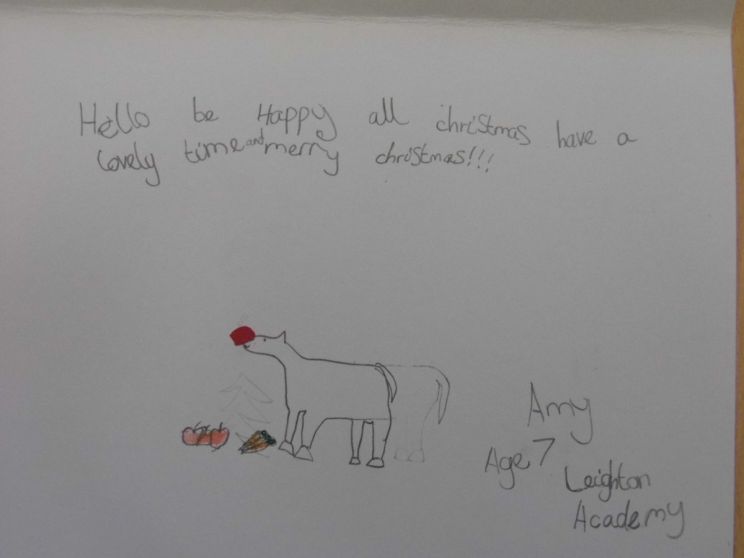 Hello be Happy all christmas have a
lovely time and merry christmas!!!
Amy
Age 7
Leighton
Academy